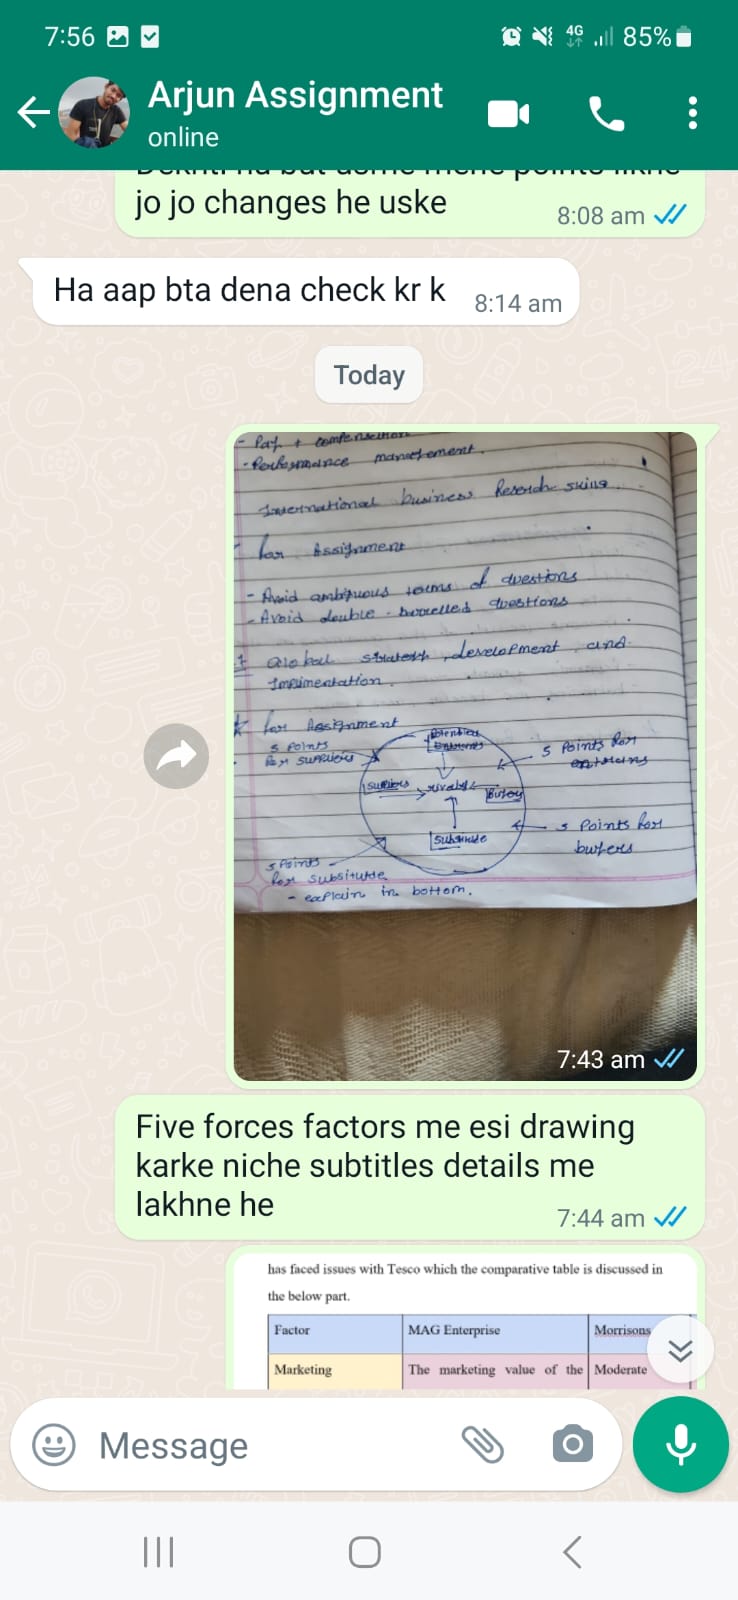 7:56
4G
85%
Arjun Assignment
online
jo jo changes he uske
8:08 am
Ha aap bta dena check kr k
8:14 am
Today
- Pay + compensation
- Performance management.
International business Research skills
for Assignment
- Avoid ambiguous terms of questions
- Avoid double - barrelled questions
Global strategy, development and
Implimentation.
for Assignment
5 points
for suppliers
Potential
5 Points for
suppliers
rivalry
5 Points for
buyers
5 Points
for subsitutde
- explain in bottom.
7:43 am
Five forces factors me esi drawing
karke niche subtitles details me
lakhne he
7:44 am
has faced issues with Tesco which the comparative table is discussed in
the below part.
Factor
MAG Enterprise
Morrisons
Marketing
The marketing value of the
Moderate
Message